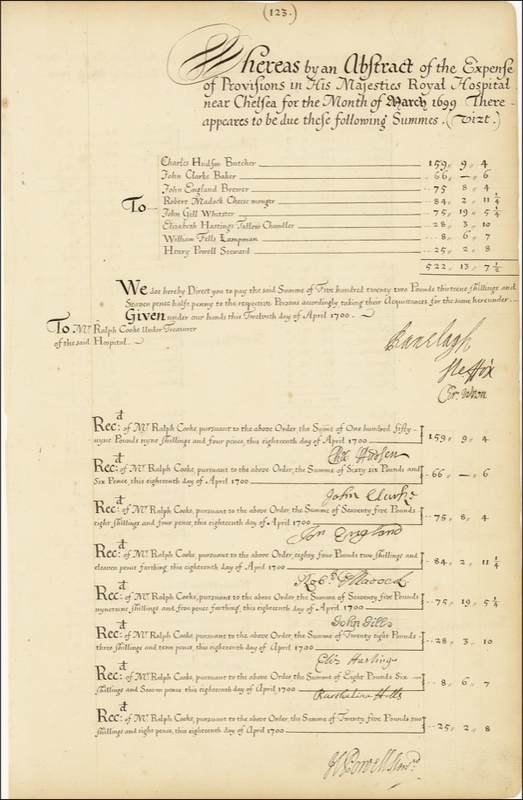 (123.)
Whereas by an Abstract of the Expense
of Provisions in His Majesties Royal Hospital
near Chelsea for the Month of March 1699 There
appeares to be due these following Summes. (Vizt.)
To
Charles Hudson Butcher 159,, 9,, 4
John Clarke Baker 66,, —,, 6
John England Brewer 75 8,, 4
Robert Madock Cheesemonger 84,, 2,, 11 1/4
John Gill Whitster 75,, 19,, 5 1/4
Elizabeth Hastings Tallow Chandler 28,, 3,, 10
William Fells Lampman 8,, 6,, 7
Henry Powell Steward 25,, 2,, 8
522,, 13,, 7 1/2
We doe hereby Direct you to pay the said Summe of Five hundred twenty two Pounds thirteene shillings and
Seaven pence halfe penny to the respective Persons accordingly taking their Acquittances for the same hereunder.
Given under our hands this Twelveth day of April 1700.
To Mr. Ralph Cooke Under Treasurer
of the said Hospital.
Ranelagh
Ste Fox
Chr: Wren
Recd: of Mr. Ralph Cooke, pursuant to the above Order, the Sume of One hundred fifty
nyne Pounds nyne shillings and four pence, this eighteenth day of April 1700 159,, 9,, 4
Cha Hudson
Recd: of Mr. Ralph Cooke, pursuant to the above Order, the Summe of Sixty six Pounds and
Six Pence, this eighteenth day of April 1700 66,, — 6
John Clarke
Recd: of Mr. Ralph Cooke, pursuant to the above Order, the Summe of Seaventy five Pounds
eight shillings and four pence, this eighteenth day of April 1700 75,, 8,, 4
Jon England
Recd: of Mr. Ralph Cooke, pursuant to the above Order, eighty four Pounds two shillings and
eleaven pence farthing, this eighteenth day of April 1700 84,, 2,, 11 1/4
Robt Maddock
Recd: of Mr. Ralph Cooke, pursuant to the above Order, the Summe of Seaventy five Pounds
nyneteene shillings and five pence farthing, this eighteenth day of April 1700 75,, 19,, 5 1/4
John Gill
Recd: of Mr. Ralph Cooke, pursuant to the above Order, the Summe of Twenty eight Pounds
three shillings and tenn pence, this eighteenth day of April 1700 28,, 3,, 10
Eliz Hastings
Recd: of Mr. Ralph Cooke, pursuant to the above Order, the Summe of Eight Pounds Six
shillings and Seaven pence, this eighteenth day of April 1700 8,, 6,, 7
Recd: of Mr. Ralph Cooke, pursuant to the above Order, the Summe of Twenty five Pounds two
shillings and eight pence, this eighteenth day of April 1700 25,, 2,, 8
H Powell Stewd.